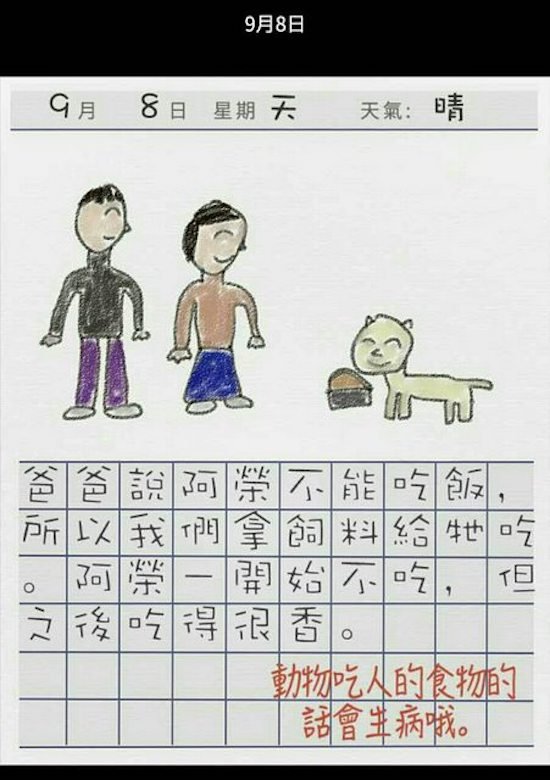 9月8日
9月 8日 星期天 天氣: 晴
爸爸說阿榮不能吃飯，
所以我們拿飼料給牠吃
。阿榮一開始不吃，但
之後吃得很香。
動物吃人的食物的
話會生病哦。